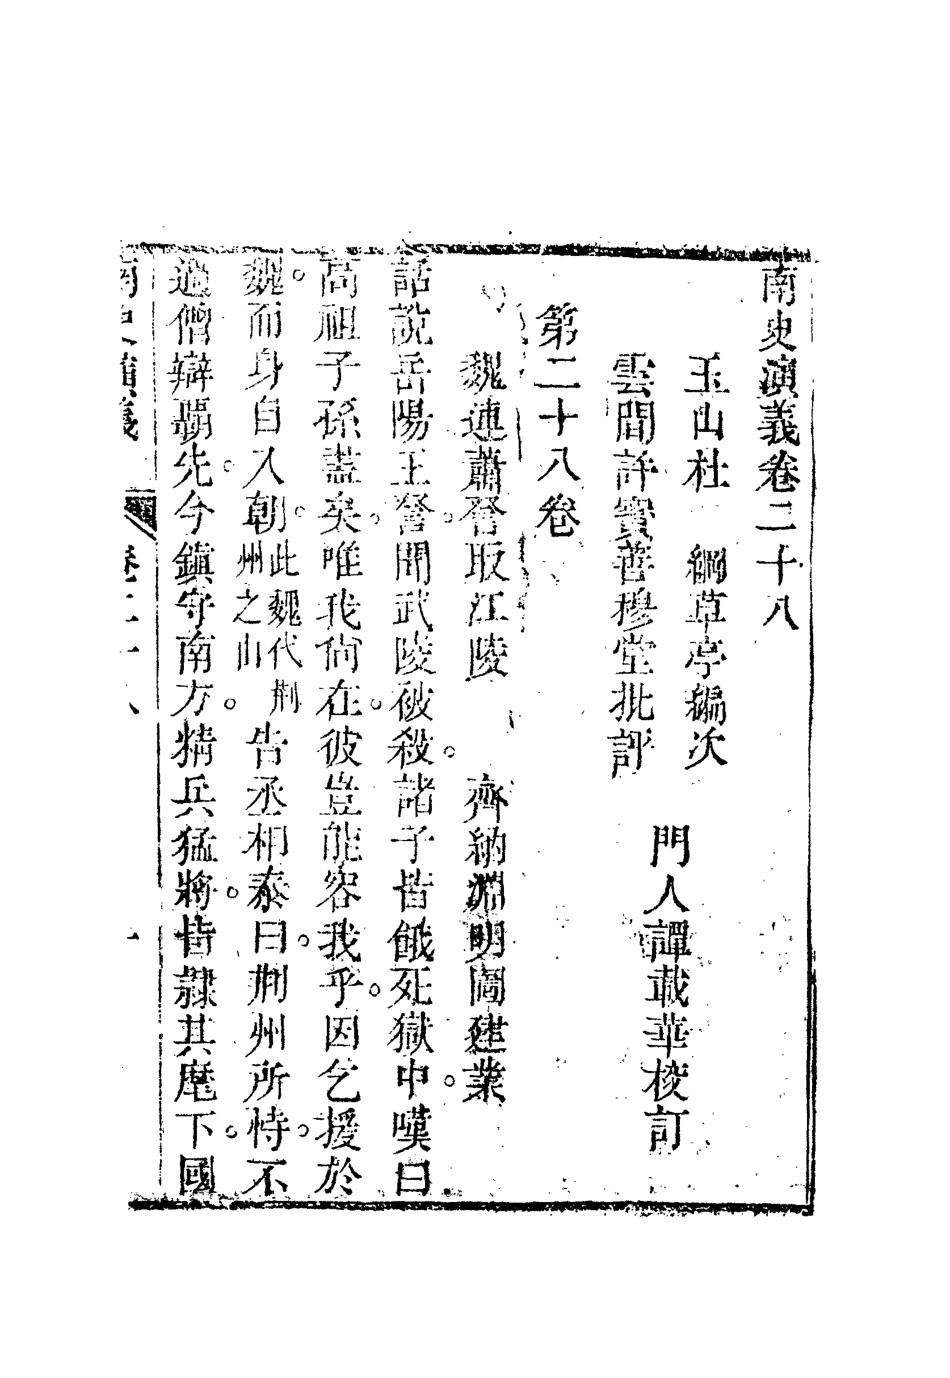 南史演義卷二十八
玉山杜 綱草亭編次
雲間許寶善穆堂批評
門人譚載華校訂
第二十八卷
魏連蕭詧取江陵 齊納淵明圖建業
話說岳陽王詧聞武陵被殺。諸子皆餓死獄中。嘆曰
高祖子孫盡矣。唯我尙在。彼豈能容我乎。因乞援於
魏。而身自入朝。此魏代荆州之由告丞相泰曰。荆州所恃。不
過僧辯霸先。今鎮守南方。精兵猛將。皆隷其麾下。國
南史演義 卷二十八 一